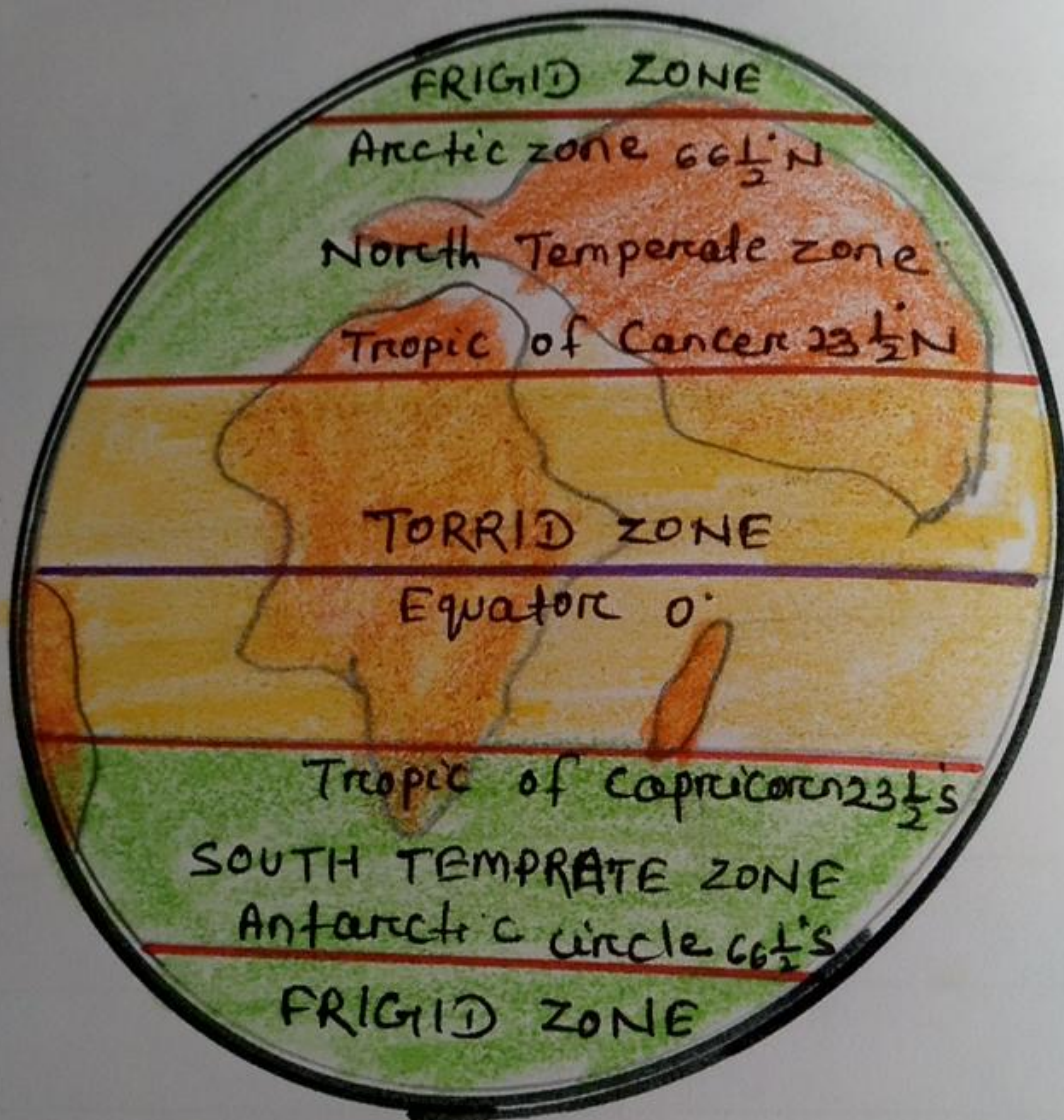 FRIGID ZONE
Arctic zone 66½°N
North Temperate zone
Tropic of Cancer 23½°N
TORRID ZONE
Equator 0°
Tropic of Capricorn 23½°S
SOUTH TEMPRATE ZONE
Antarctic circle 66½°S
FRIGID ZONE